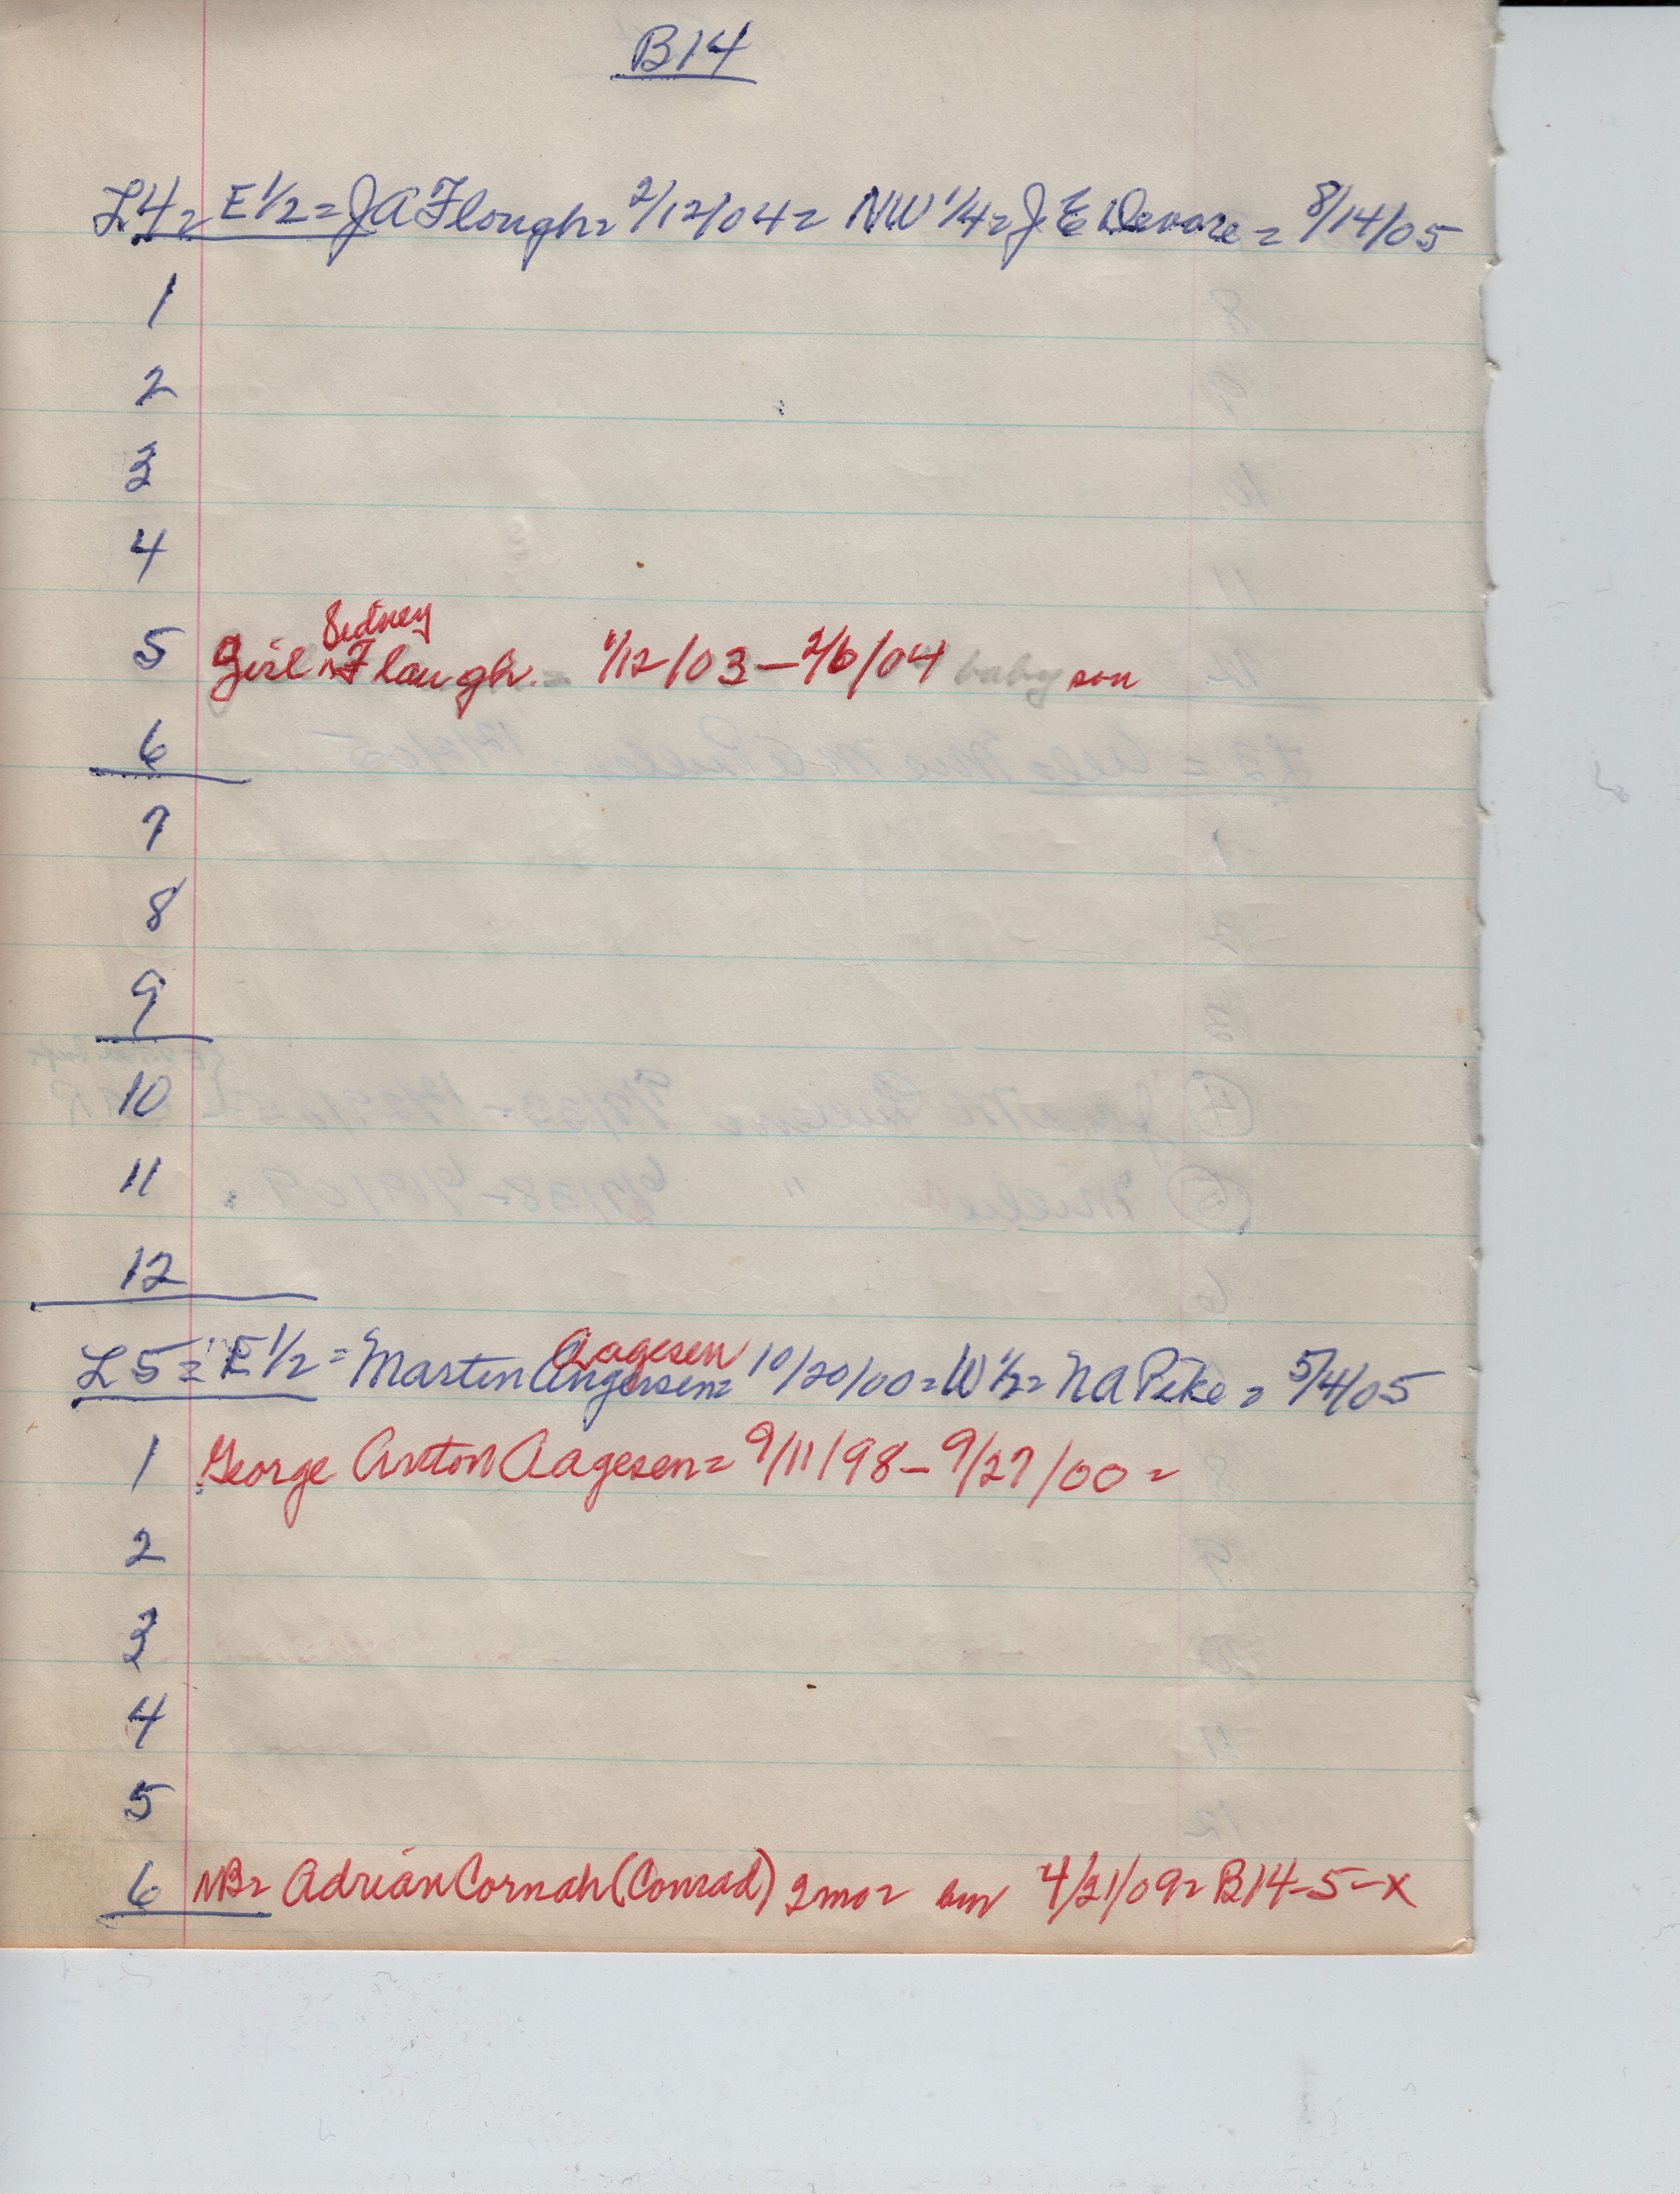 B14
L4= E 1/2 = J A Flough = 2/12/04 = NW 1/4 = J E Devore = 8/14/05
1
2
3
4
Sidney
5 Girl ^ Flaugh. = 1/12/03 - 2/6/04 baby son
6
7
8
9
10
11
12
Aagesen
L5 = E 1/2 = Marten Angersen = 10/20/00 = W 1/2 = N A Pike = 5/4/05
1 George Anton Aagesen = 9/11/98 - 9/27/00 =
2
3
4
5
6 NB= Adrian Cornah (Conrad) 2mo = bur 4/21/09 = B14-5-x